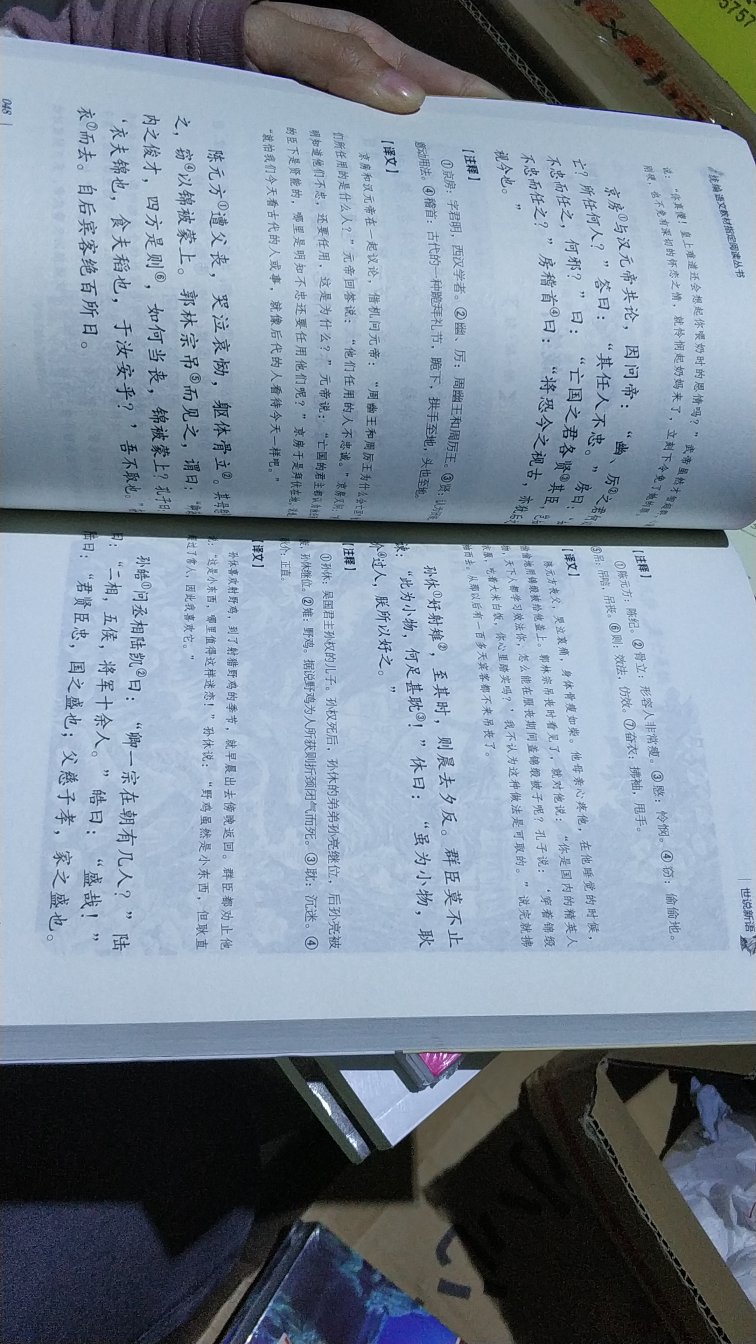 统编语文教材指定阅读丛书
说：“你真傻！皇上难道还会想起你喂奶时的恩情吗？”武帝虽然才智超群
刚硬，也不免有深切的怀恋之情，就怜悯起奶妈来了，立刻下令免了她的罪
京房①与汉元帝共论，因问帝：“幽、厉②之君何
亡？所任何人？”答曰：“其任人不忠。”房曰：“知
不忠而任之，何邪？”曰：“亡国之君各贤③其臣，岂知
不忠而任之？”房稽首④曰：“将恐今之视古，亦犹后之
视今也。”
【注释】
①京房：字君明，西汉学者。②幽、厉：周幽王和周厉王。③贤：
意动用法。④稽首：古代的一种跪拜礼节，跪下，拱手至地，头也至地。
【译文】
京房和汉元帝在一起议论，借机问元帝：“周幽王和周厉王为什么会亡
们所任用的是什么人？”元帝回答说：“他们任用的人不忠诚。”京房又问：
明知道他们不忠，还要任用，这是为什么？”元帝说：“亡国的君主都认为他
的臣下是贤能的，哪里是明知不忠还要任用他们呢？”京房于是拜伏在地，
“就怕我们今天看古代的人或事，就像后代的人看待今天一样吧。”
陈元方①遭父丧，哭泣哀恸，躯体骨立②。其母愍
之，窃④以锦被蒙上。郭林宗吊⑤而见之，谓曰：“卿
内之俊才，四方是则⑥，如何当丧，锦被蒙上？孔子曰
‘衣夫锦也，食夫稻也，于汝安乎？’吾不取也。”
衣⑦而去。自后宾客绝百所日。
048
世说新语
【注释】
①陈元方：陈纪。②骨立：形容人非常瘦。③愍：怜悯。④窃：偷偷地。
⑤吊：吊唁，吊丧。⑥则：效法，仿效。⑦奋衣：拂袖，甩手。
【译文】
陈元方丧父，哭泣哀痛，身体骨瘦如柴。他母亲心疼他，在他睡觉的时候，
偷偷地用锦缎被给他盖上。郭林宗吊丧时看见了，就对他说：“你是国内的精英人
物，天下人都学习效法你，怎么能在服丧期间盖锦缎被子呢？孔子说：‘穿着锦缎
衣服，吃着大米白饭，你心里踏实吗？’我不认为这种做法是可取的。”说完就拂
袖而去。从那以后有一百多天宾客都不来吊丧了。
孙休①好射雉②，至其时，则晨去夕反。群臣莫不止
谏：“此为小物，何足甚耽③！”休曰：“虽为小物，耿
介④过人，朕所以好之。”
【注释】
①孙休：吴国君主孙权的儿子。孙权死后，孙休的弟弟孙亮继位，后孙亮被
废，孙休继位。②雉：野鸡。据说野鸡为人所获则折颈闭气而死。③耽：沉迷。④
耿介：正直。
【译文】
孙休喜欢射野鸡，到了射猎野鸡的季节，就早晨出去傍晚返回。群臣都劝止他
说：“这是小东西，哪里值得这样迷恋！”孙休说：“野鸡虽然是小东西，但耿直
超过了常人，因此我喜欢它。”
孙皓①问丞相陆凯②曰：“卿一宗在朝有几人？”陆
曰：“二相，五侯，将军十余人。”皓曰：“盛哉！”
陆曰：“君贤臣忠，国之盛也；父慈子孝，家之盛也。
5757